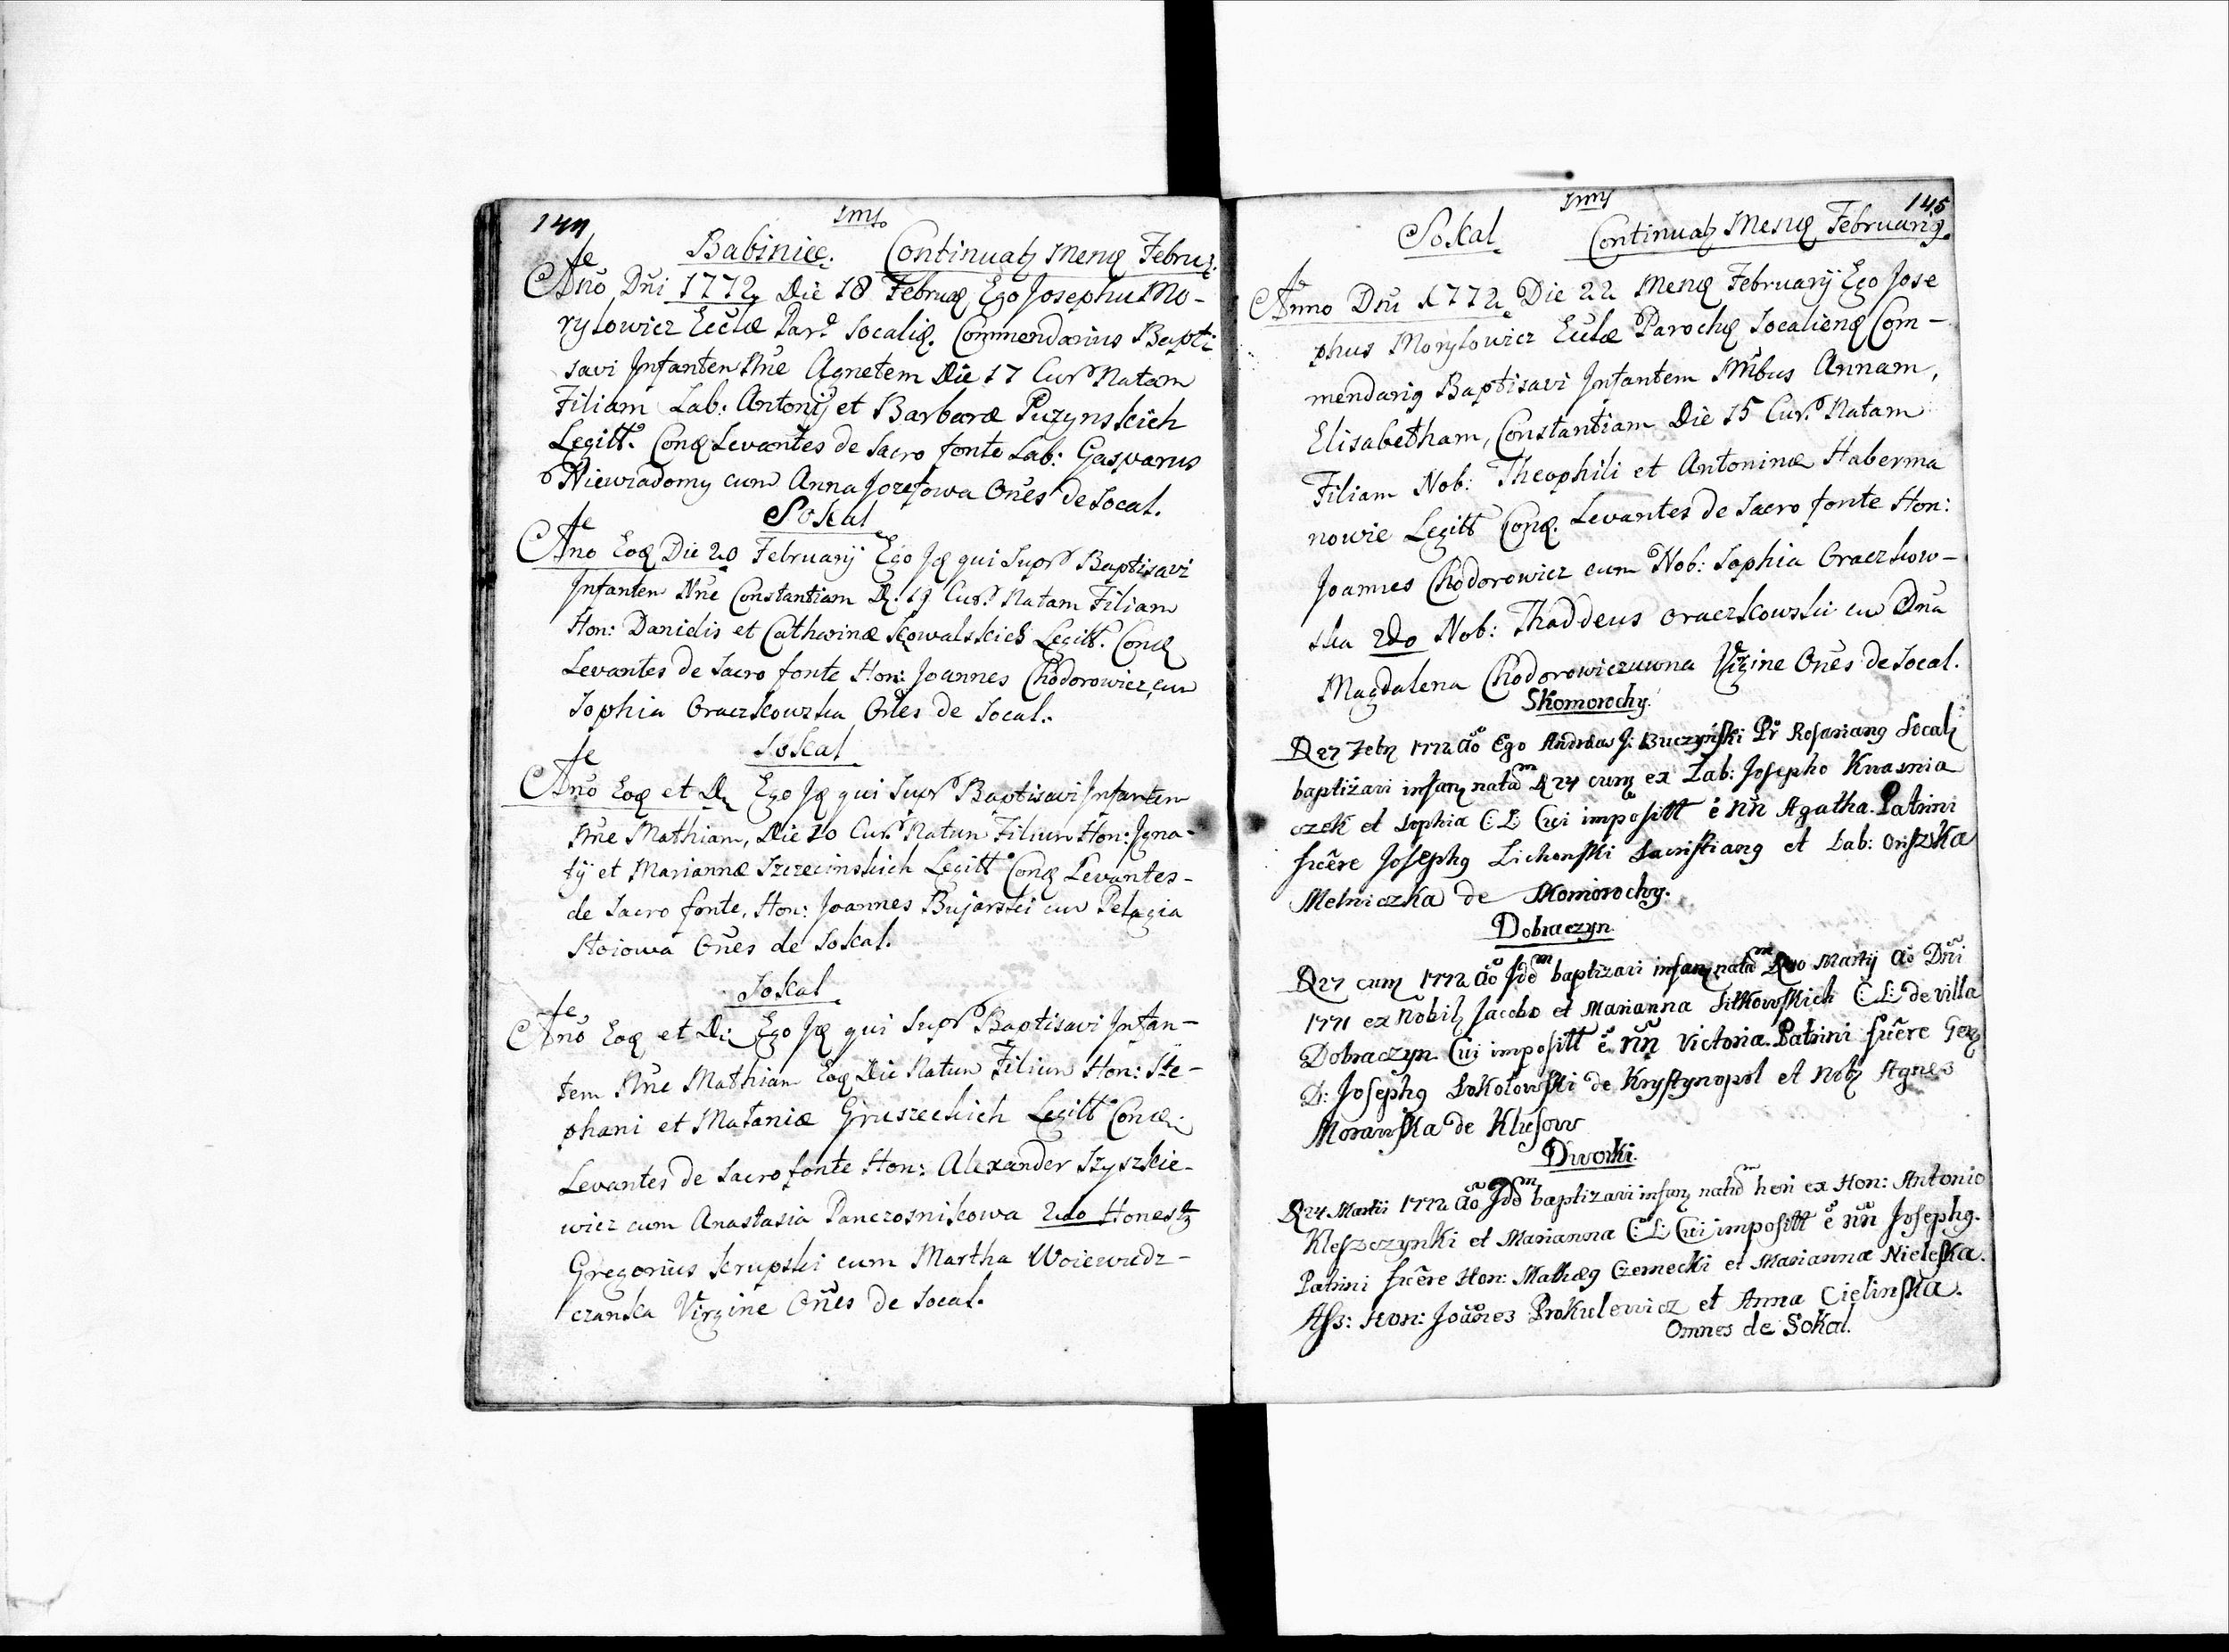 144
Babinice. Continuat Mens Febru
Ano Dni 1772 Die 18 Februa Ego Josephus Mo-
rylowicz Eccla Par. Socalis. Commendarius Bapti
savi Infantem Nne Agnetem Die 17 Cur Natam
Filiam Lab: Antonij et Barbaræ Puzynskich
Legitt. Conq Levantes de Sacro fonte Lab: Gasparus
Niewiadomy cum Anna Jozefowa Ones de Socal.
Sokal
Ano Eoq Die 20 February Ego Iq qui Supr Baptisavi
Infantem Nne Constantiam D: 19 Cur. Natam Filiam
Hon: Danielis et Catharinæ Kowalskich Legitt. Conq
Levantes de Sacro fonte Hon: Joannes Chodorowicz cum
Sophia Oraczkowska Ones de Socal.
Sokal
Ano Eoq et D. Ego Iq qui Supr Baptisavi Infantem
Nne Mathiam, Die 20 Cur. Natum Filium Hon: Igna-
tij et Mariannæ Szczecinskich Legitt Conq Levantes-
de Sacro fonte, Hon: Joannes Bujarski cum Pelagia
Stoiowa Ones de Sokal.
Sokal
Ano Eoq et D: Ego Iq qui Supr Baptisavi Infan-
tem Nne Mathiam Eoq Die Natum Filium Hon: Ste-
phani et Mataniæ Gruszeckich Legitt Conq
Levantes de Sacro fonte Hon: Alexander Szyszkie-
wicz cum Anastasia Panczosnikowa 2do Honest
Gregorius Krupski cum Martha Woiewudz-
czanka Virgine Ones de Socal.
145
Sokal Continuat Mensq Februariq.
Anno Dni 1772 Die 22 Menq February Ego Jose
phus Morylowicz Eccla Parochq Socalienq Com-
mendariq Baptisavi Infantem Nnibus Annam,
Elisabetham, Constantiam Die 15 Cur. Natam
Filiam Nob: Theophili et Antoninæ Haberma
nowie Legitt Conq. Levantes de Sacro fonte Hon:
Joannes Chodorowicz cum Nob: Sophia Oraczkow-
ska 2do Nob: Thaddeus Oraczkowski cu Dna
Magdalena Chodorowiczuwna Virgine Ones de Socal.
Skomorochy.
D 27 Febr 1772 Ao Ego Andreas J: Buczyński Pr Rosarianq Socal
baptizavi infan natam D 24 cur ex Lab: Josepho Kwasnia
czek et Sophia C: L: Cui impositt e nn Agatha. Patrini
fuere Josephq Lichonski Sacristianq et Lab: Oriszka
Melniczka de Skomorochy.
Dobraczyn.
D 27 cur 1772 Ao Idem baptizavi infan natam Martij Ao Dni
1771 ex Nobil Jacobo et Marianna Sitkowskich C: L: de villa
Dobraczyn. Cui impositt e nn Victoria. Patrini fuere Gen
D: Josephq Sokolowski de Krystynopol et Nob Agnes
Morawska de Klusow
Dworki.
D 24 Martii 1772 Ao Idem baptizavi infan natum heri ex Hon: Antonio
Kleszczynki et Marianna C: L: Cui impositt e nn Josephq.
Patrini fuere Hon: Mathæq Czernecki et Marianna Nieleska.
Ass: Hon: Joanes Prokulewicz et Anna Cielinska.
Omnes de Sokal.